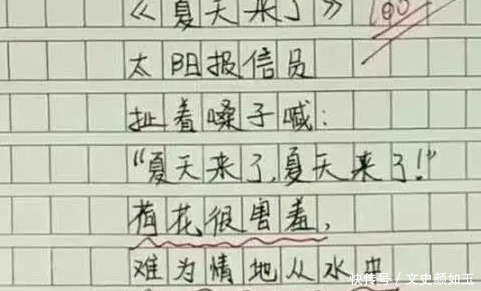 《夏天来了》 100
太阳报信员
扯着嗓子喊：
“夏天来了，夏天来了！”
荷花很害羞，
难为情地从水中
快传号／文史颜如玉